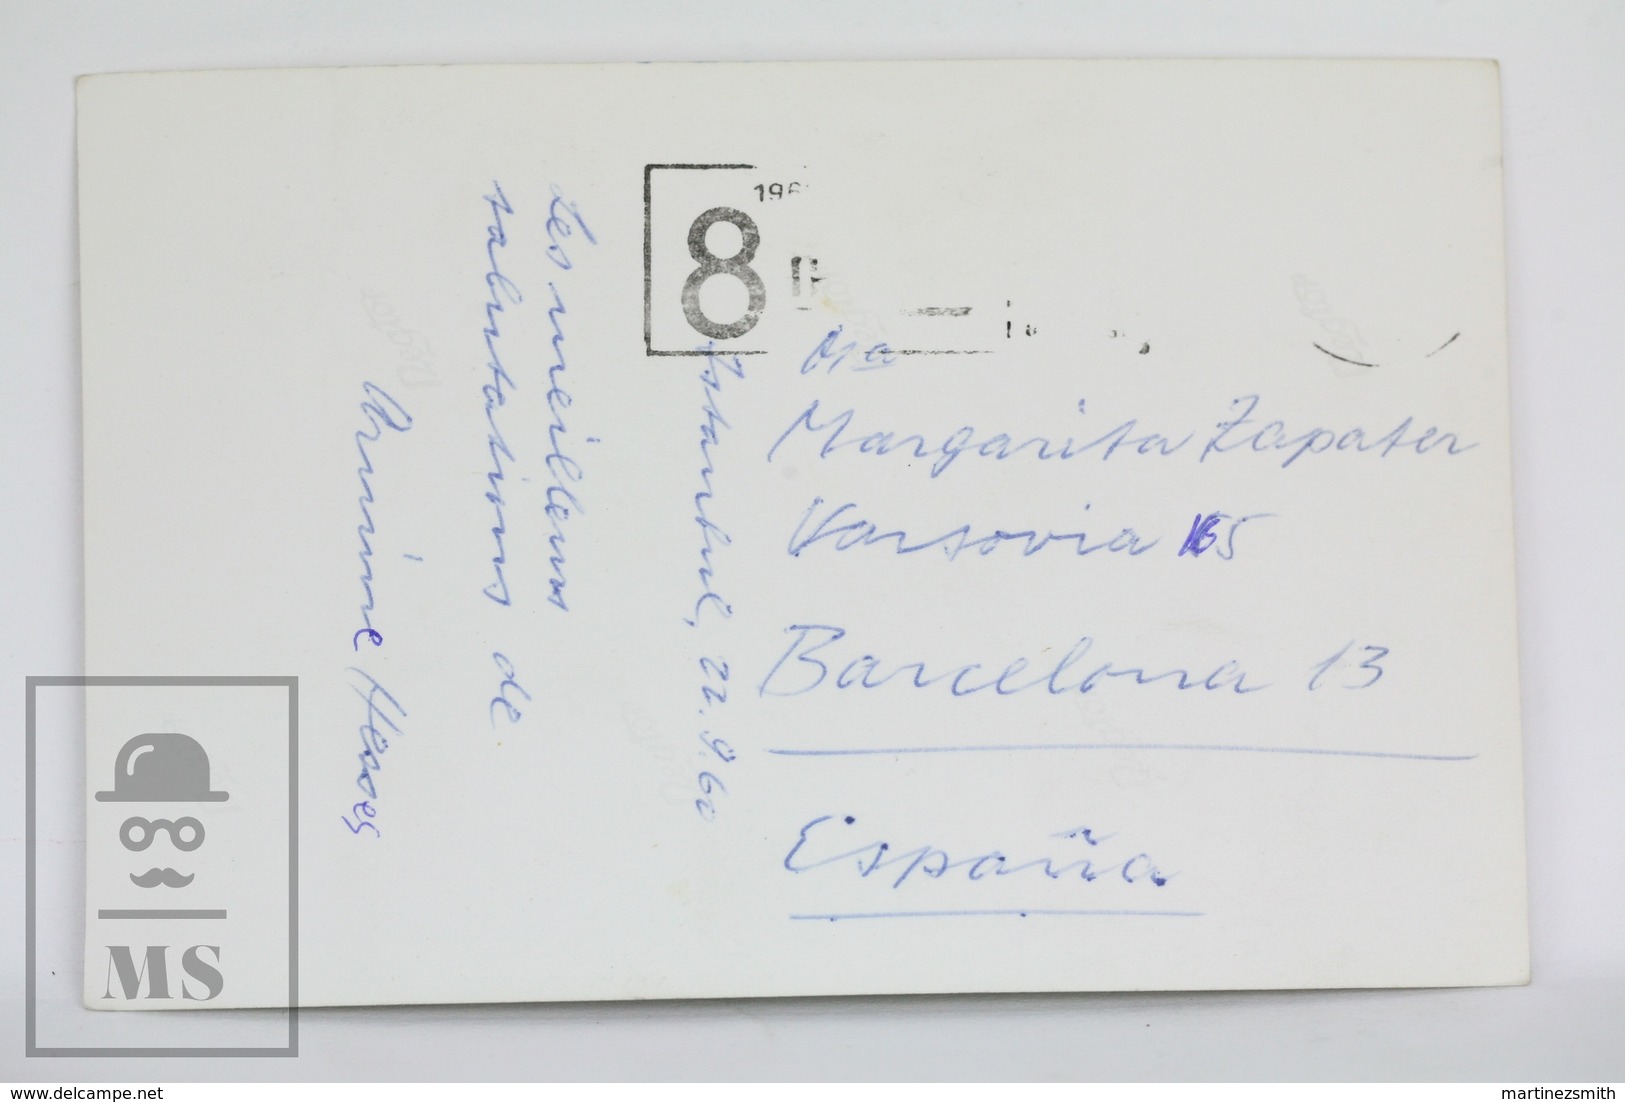 Istanbul, 22.9.60
Les meilleurs
salutations de
8
Ma
Margarita Zapater
Varsovia 165
Barcelona 13
España
MS
delcampe.net
martinezsmith